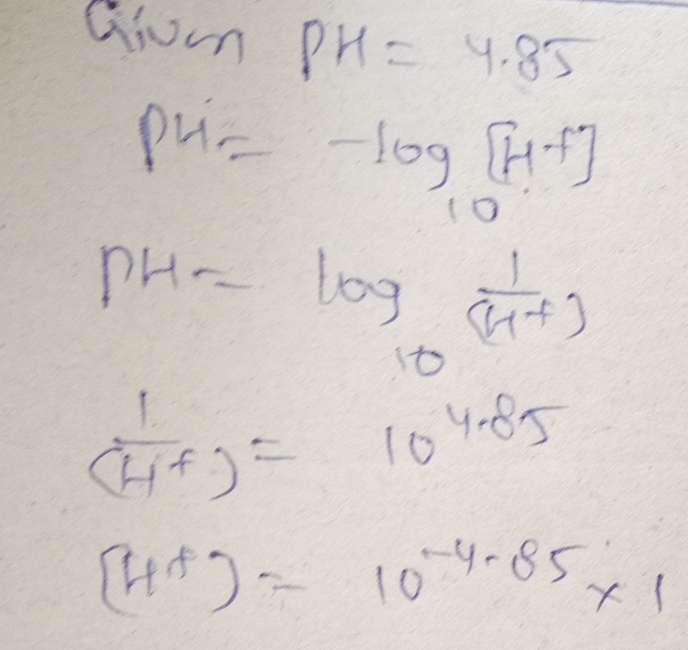 Given PH = 4.85
PH = -log10 [H+]
PH = log10 1/[H+]
1/[H+] = 10^4.85
[H+] = 10^-4.85 x 1